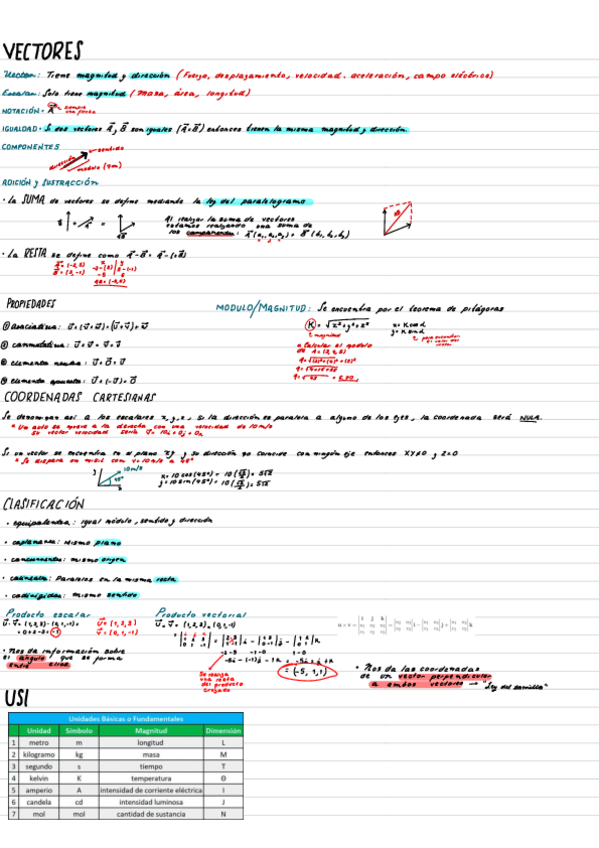 VECTORES
Vector: Tiene magnitud y dirección (Fuerza, desplazamiento, velocidad. aceleración, campo eléctrico)
Escalar: Solo tiene magnitud (Masa, área, longitud)
NOTACIÓN = A⃗ siempre una flecha
IGUALDAD = Si dos vectores A⃗ y B⃗ son iguales (A⃗=B⃗) entonces tienen la misma magnitud y dirección.
COMPONENTES
sentido
dirección
módulo
ADICIÓN y SUSTRACCIÓN
· La SUMA de vectores se define mediante la ley del paralelogramo
Al realizar la suma de vectores
estamos realizando una suma de
los componentes: A⃗ (a₁, a₂, a₃) + B⃗ (b₁, b₂, b₃)
· La RESTA se define como A⃗-B⃗ = A⃗-(+B⃗)
PROPIEDADES
MODULO/MAGNITUD: Se encuentra por el teorema de pitágoras
① Asociativa:
② conmutativa:
③ elemento neutro: U⃗+O⃗=U⃗
④ elemento opuesto: U⃗+(-U⃗)=O⃗
K = √x²+y²+z²
magnitud
Calcular el modulo
de A=(2,4,5)
COORDENADAS CARTESIANAS
Se denominan así a los escalares x, y, z, si la dirección es paralela a alguno de los ejes, la coordenada será NULA.
* Un auto se mueve a la derecha con una velocidad de 10m/s
Su vector velocidad sería V⃗= 10i+0j+0k
Si un vector se encuentra en el plano xy y su dirección no coincide con ningún eje entonces XY≠0 y Z=0
* Se dispara un misil con v=10m/s a 45°
10m/s
45°
x= 10cos(45°) = 10(√2/2) = 5√2
y= 10sin(45°) = 10(√2/2) = 5√2
CLASIFICACIÓN
· equipolentes: igual módulo, sentido y dirección
· coplanares: mismo plano
· concurrentes: mismo origen
· colineales: Paralelos en la misma recta
· codirigidos: mismo sentido
Producto escalar
Producto vectorial
U⃗·V⃗ = (1,2,3)·(0,1,-1)=
= 0+2-3= -1
V⃗= (0,1,-1)
= (-5, 1, 1)
· Nos da información sobre
el angulo que se forma
entre ellos.
Se realiza
una resta
del producto
cruzado
· Nos da las coordenadas
de un vector perpendicular
a ambos vectores → "Ley del tornillo"
USI
Unidades Básicas o Fundamentales
Unidad Símbolo Magnitud Dimensión
1 metro m longitud L
2 kilogramo kg masa M
3 segundo s tiempo T
4 kelvin K temperatura Θ
5 amperio A intensidad de corriente eléctrica I
6 candela cd intensidad luminosa J
7 mol mol cantidad de sustancia N